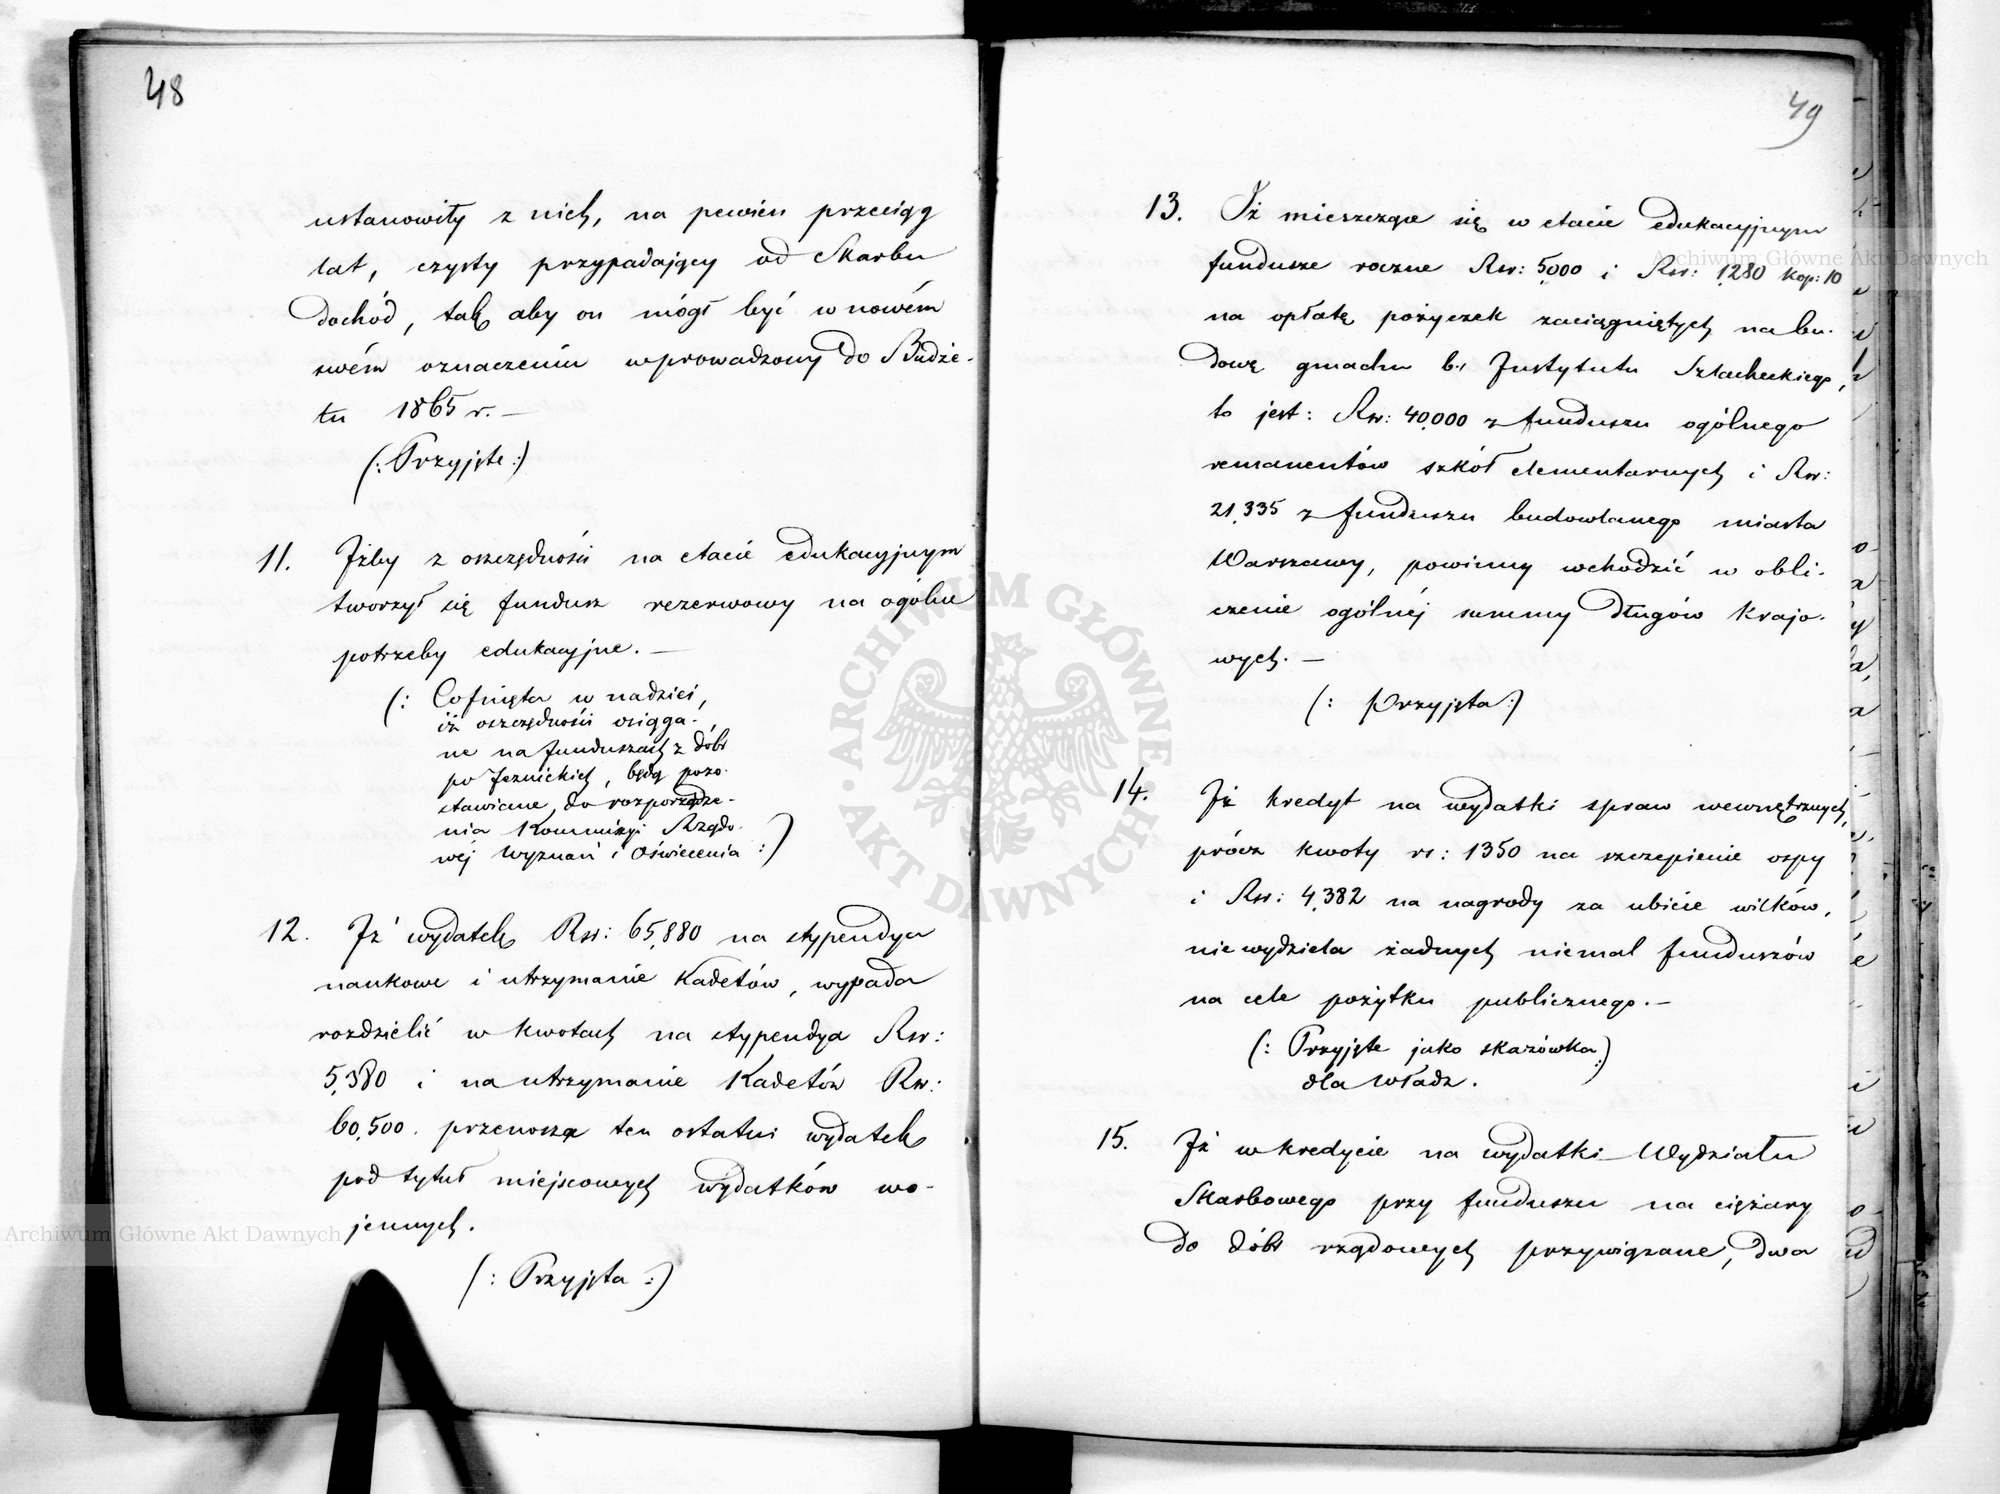 48
ustanowiły z nich, na pewien przeciąg
lat, czysty przypadający od Skarbu
dochód, tak aby on mógł być w nowém
swém oznaczeniu wprowadzony do Budże-
tu 1865 r. —
(: Przyjęte :)
11. Iżby z oszczędności na etacie edukacyjnym
tworzył się fundusz rezerwowy na ogólne
potrzeby edukacyjne. —
(: Cofnięta w nadziei,
iż oszczędności osiąga-
ne na funduszach z dóbr
po Jezuickich, będą pozo-
stawione do rozporządze-
nia Kommissyi Rządo-
wéj Wyznań i Oświecenia :)
12. Iż wydatek Rsr: 65,880 na stypendya
naukowe i utrzymanie Kadetów, wypada
rozdzielić w kwotach na stypendya Rsr:
5,380 i na utrzymanie Kadetów Rsr:
60,500. przenosząc ten ostatni wydatek
pod tytuł miejscowych wydatków wo-
jennych.
(: Przyjęta :)
49
13. Iż mieszczące się w etacie edukacyjnym
fundusze roczne Rsr: 5,000 i Rsr: 1,280 kop: 10
na opłatę pożyczek zaciągniętych na bu-
dowę gmachu b. Instytutu Szlacheckiego,
to jest: Rsr: 40,000 z funduszu ogólnego
remanentów szkół elementarnych i Rsr:
21,335 z funduszu budowlanego miasta
Warszawy, powinny wchodzić w obli-
czenie ogólnéj summy długów krajo-
wych. —
(: Przyjęta :)
14. Iż kredyt na wydatki spraw wewnętrznych,
prócz kwoty rs: 1350 na szczepienie ospy
i Rsr: 4,382 na nagrody za ubicie wilków,
nie wydziela żadnych niemal funduszów
na cele pożytku publicznego. —
(: Przyjęte jako skazówka :)
dla władz.
15. Iż w kredycie na wydatki Wydziału
Skarbowego przy funduszu na ciężary
do dóbr rządowych przywiązane, dwa
ARCHIWUM GŁÓWNE AKT DAWNYCH
Archiwum Główne Akt Dawnych
Archiwum Główne Akt Dawnych